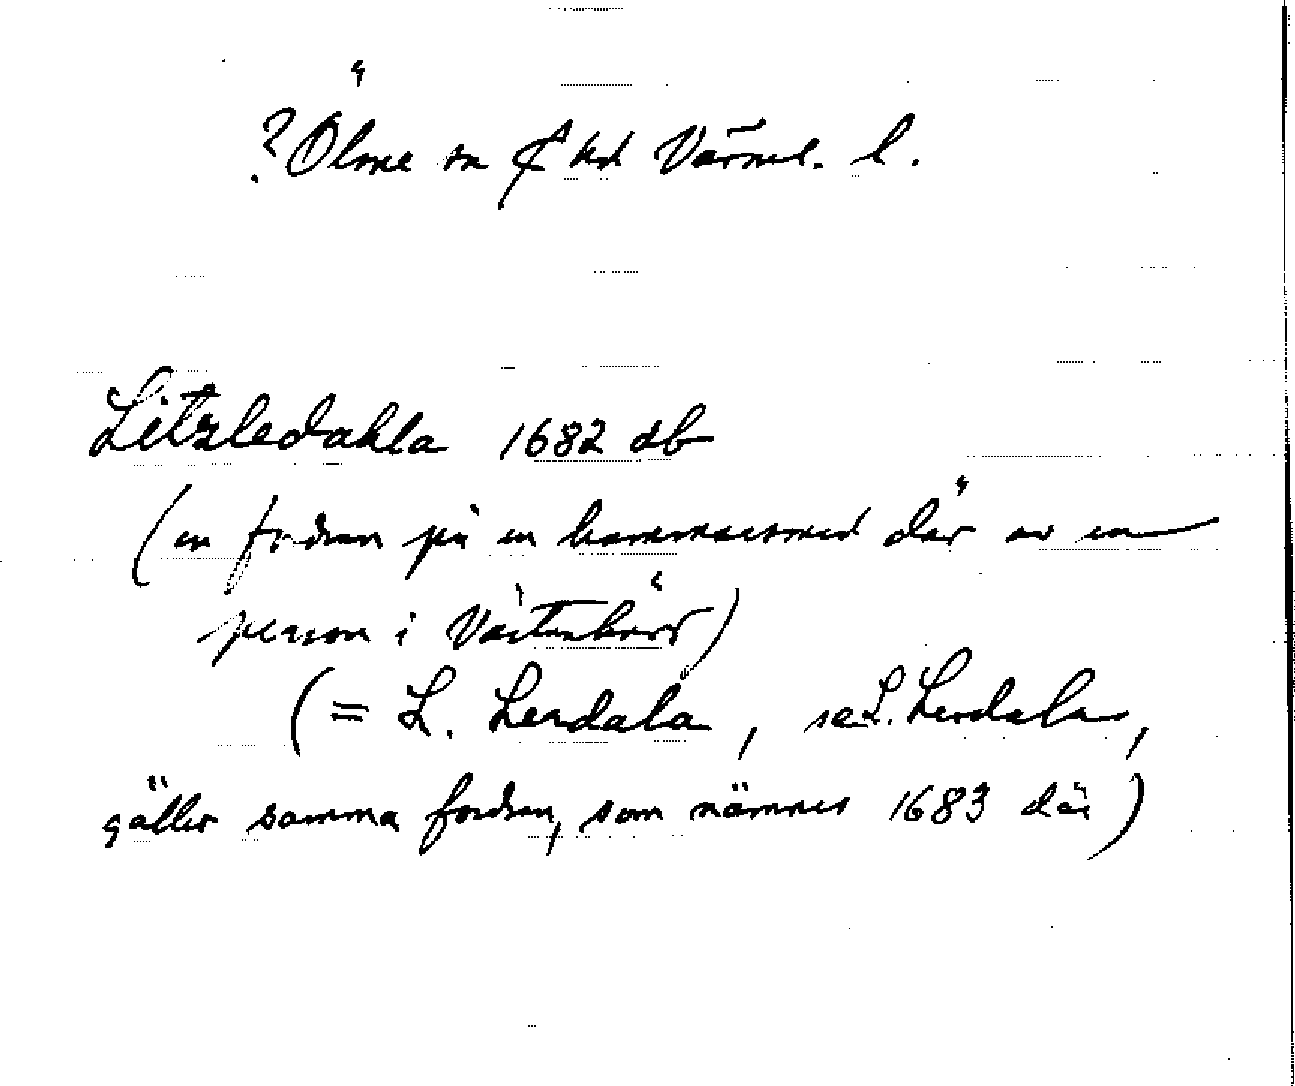 ? Ölme sn ₵ hd Värml. l.
Litzledahla 1682 db
(en fodran på en hammarsmed där av en
person i Västenhärs)
(= L. Lerdala, se L. Lerdala,
gäller samma fordran, som nämnes 1683 där)